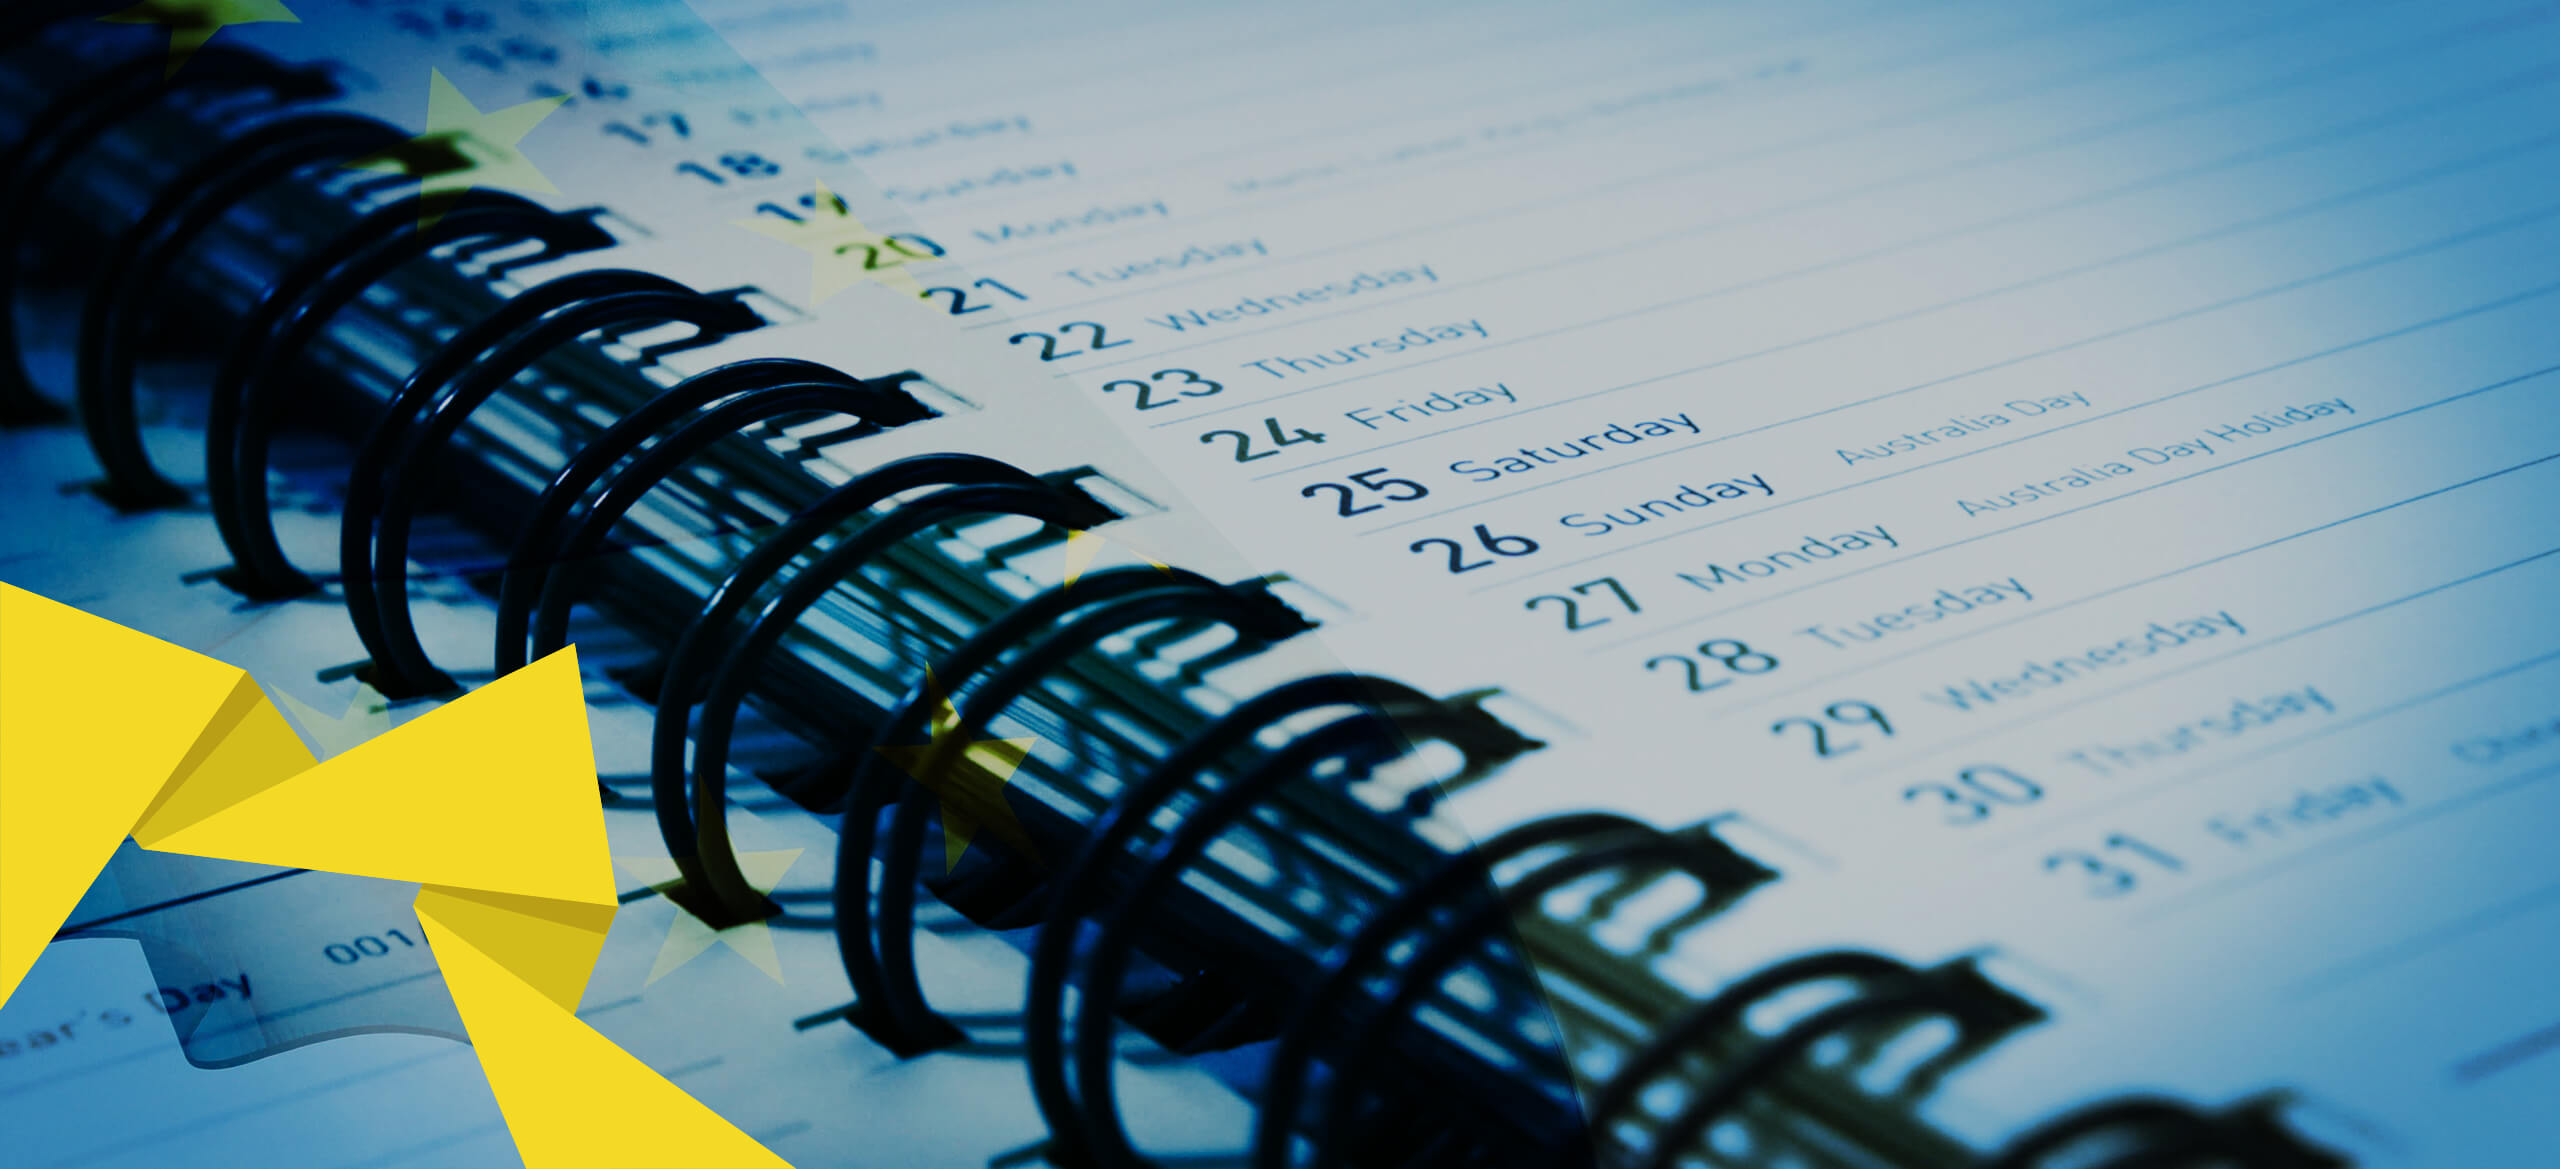 17 Friday
18 Saturday
19 Sunday
20 Monday
21 Tuesday
22 Wednesday
23 Thursday
24 Friday
25 Saturday
26 Sunday Australia Day
27 Monday Australia Day Holiday
28 Tuesday
29 Wednesday
30 Thursday
31 Friday
ear's Day 001